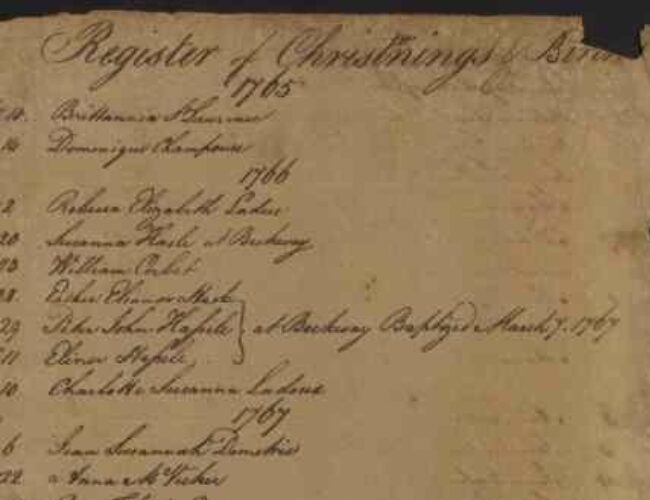 Register of Christnings &
1765
14. Brittannia St Laurence
14 Dominique Champoux
1766
2 Rebecca Elizabeth Ladue
20 Susanna Hasle at Beckway
23 William Corbet
28. Esther Eleanor
29 Peter John Hassele } at Beckway Baptized March 7. 1767
11 Elinor
10 Charlotte Susanna Ladoux
1767
6 Susannah Demetrie
22 a Anna McVicker